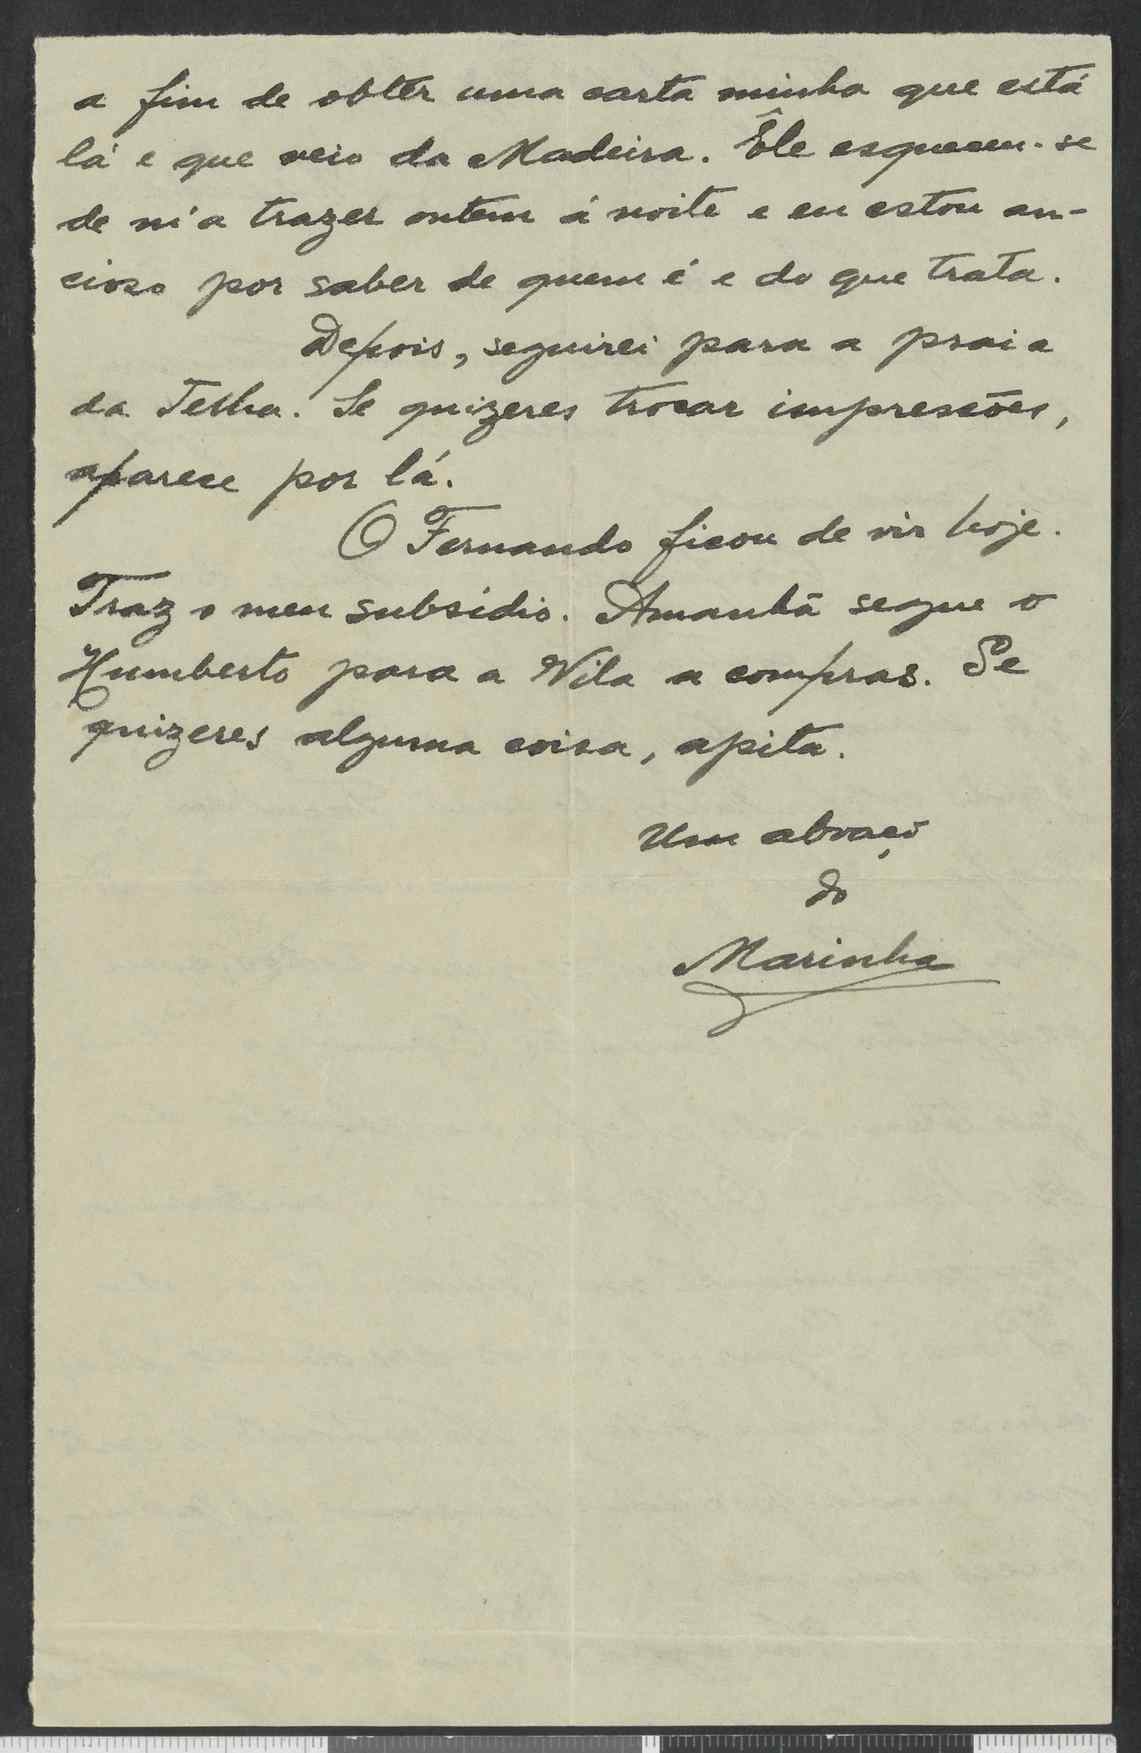 a fim de obter uma carta minha que está
lá e que veio da Madeira. Êle esqueceu-se
de m'a trazer ontem á noite e eu estou an-
cioso por saber de quem é e do que trata.
Depois, seguirei para a praia
da Telha. Se quizeres trocar impressões,
aparece por lá.
O Fernando ficou de vir hoje.
Traz o meu subsídio. Amanhã segue o
Humberto para a Vila a compras. Se
quizeres alguma coisa, apita.
Um abraço
do
Marinha